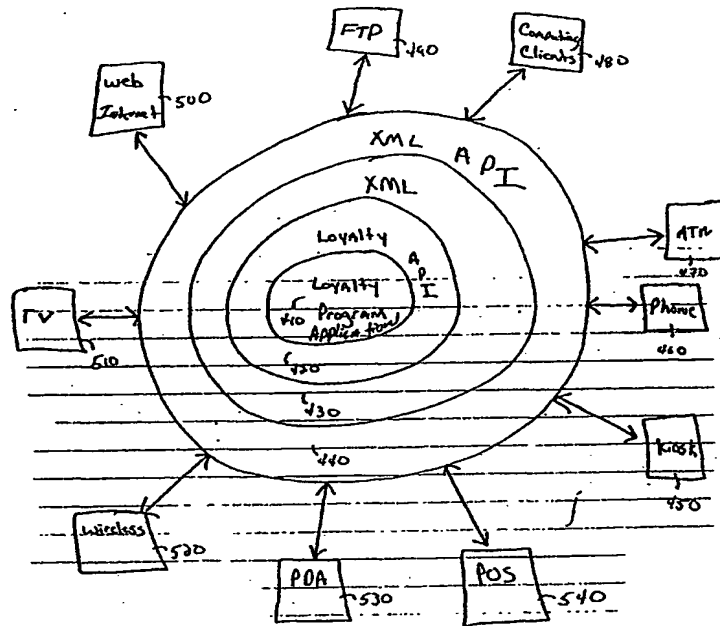 FTP
490
Computing
Clients
480
Web
Internet
500
XML
API
XML
Loyalty
API
Loyalty
Program
Application
410
420
430
440
ATM
470
Phone
460
Kiosk
450
TV
510
Wireless
520
PDA
530
POS
540